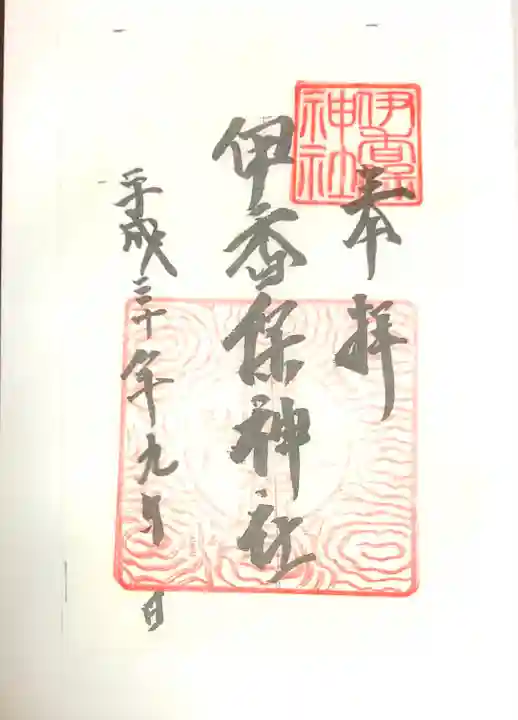 奉拝
伊香保神社
伊香保神社
平成三十年九月 日